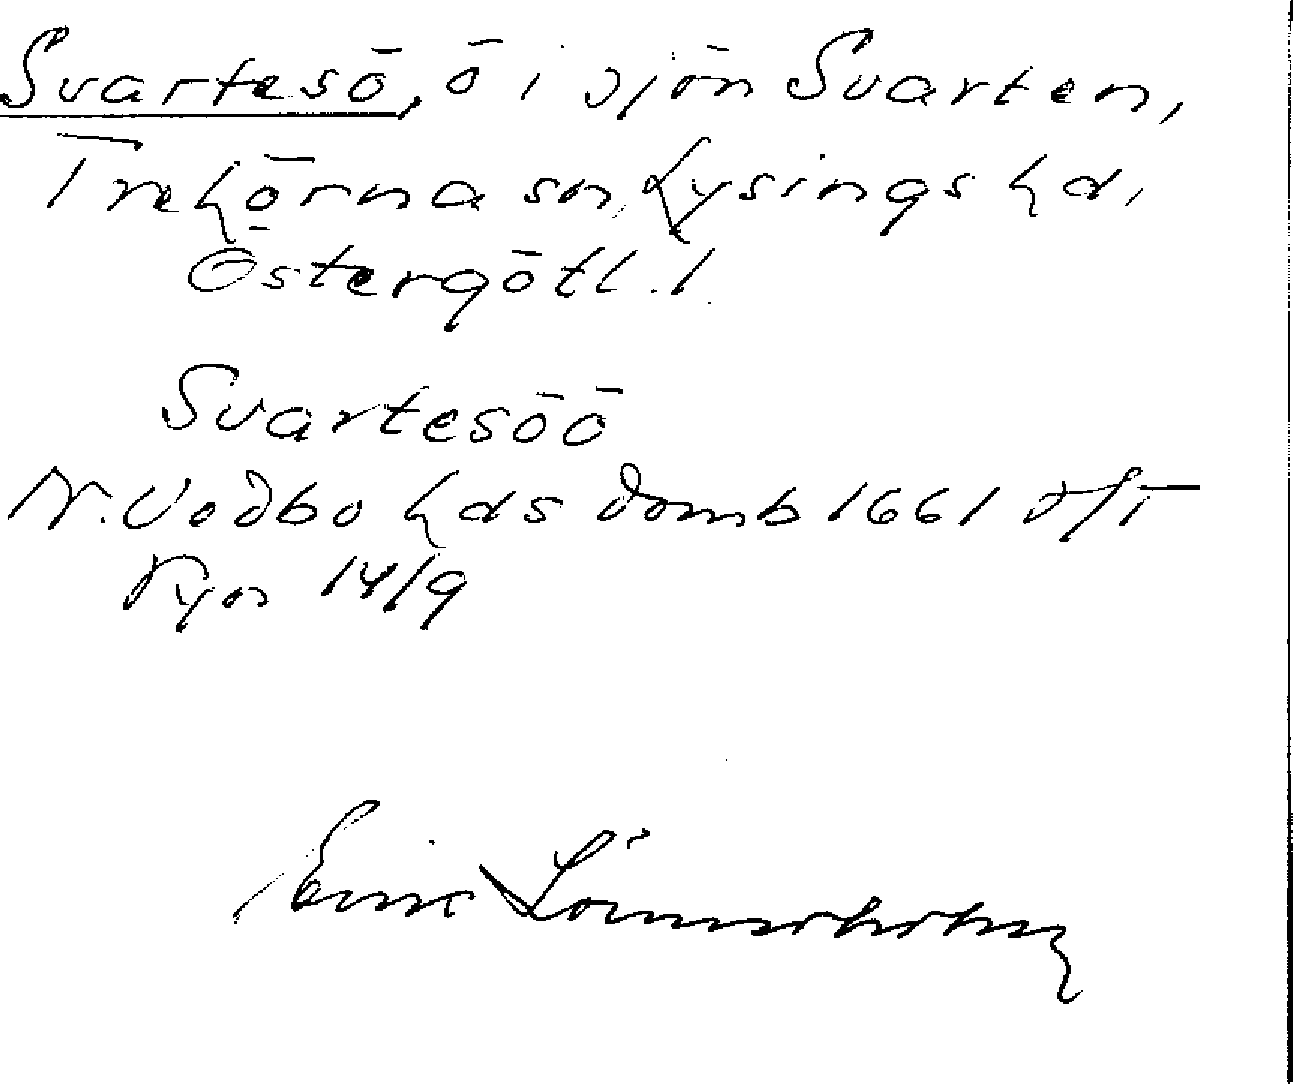 Svartesö, ö i sjön Svarten,
Trehörna sn, Lysings hd,
Östergötl. l.
Svartesöö
N. Vedbo hds domb 1661 v/t
Vyn 14/9